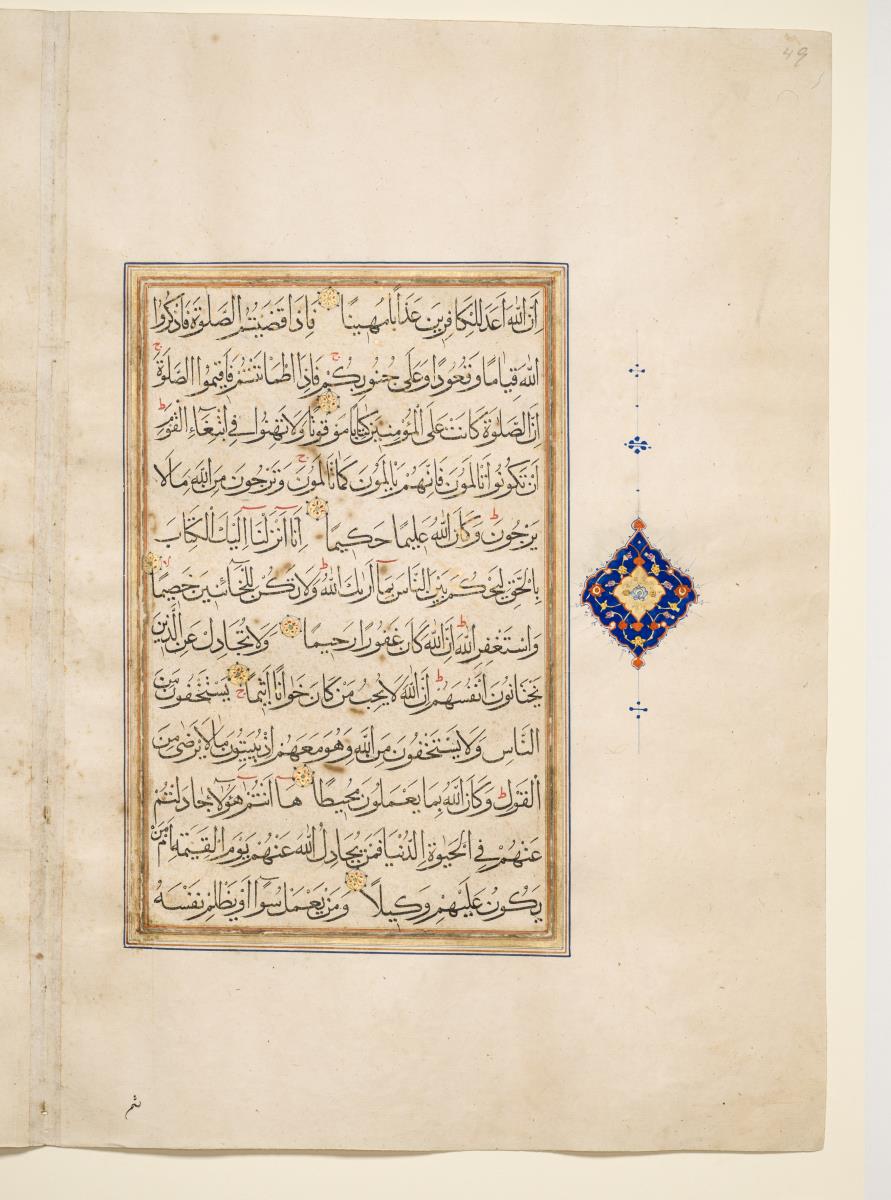 49
اِنَّ اللهَ اَعَدَّ لِلْكَافِرِينَ عَذَابًا مُهِينًا فَاِذَا قَضَيْتُمُ الصَّلٰوةَ فَاذْكُرُوا
اللهَ قِيَامًا وَقُعُودًا وَعَلٰى جُنُوبِكُمْ فَاِذَا اطْمَأْنَنْتُمْ فَاَقِيمُوا الصَّلٰوةَ
اِنَّ الصَّلٰوةَ كَانَتْ عَلَى الْمُؤْمِنِينَ كِتَابًا مَوْقُوتًا وَلَا تَهِنُوا فِي ابْتِغَاءِ الْقَوْمِ
اِنْ تَكُونُوا تَأْلَمُونَ فَاِنَّهُمْ يَأْلَمُونَ كَمَا تَأْلَمُونَ وَتَرْجُونَ مِنَ اللهِ مَا لَا
يَرْجُونَ وَكَانَ اللهُ عَلِيمًا حَكِيمًا اِنَّا اَنْزَلْنَا اِلَيْكَ الْكِتَابَ
بِالْحَقِّ لِتَحْكُمَ بَيْنَ النَّاسِ بِمَا اَرٰيكَ اللهُ وَلَا تَكُنْ لِلْخَائِنِينَ خَصِيمًا
وَاسْتَغْفِرِ اللهَ اِنَّ اللهَ كَانَ غَفُورًا رَحِيمًا وَلَا تُجَادِلْ عَنِ الَّذِينَ
يَخْتَانُونَ اَنْفُسَهُمْ اِنَّ اللهَ لَا يُحِبُّ مَنْ كَانَ خَوَّانًا اَثِيمًا يَسْتَخْفُونَ مِنَ
النَّاسِ وَلَا يَسْتَخْفُونَ مِنَ اللهِ وَهُوَ مَعَهُمْ اِذْ يُبَيِّتُونَ مَا لَا يَرْضٰى مِنَ
الْقَوْلِ وَكَانَ اللهُ بِمَا يَعْمَلُونَ مُحِيطًا هَا اَنْتُمْ هٰؤُلَاءِ جَادَلْتُمْ
عَنْهُمْ فِي الْحَيٰوةِ الدُّنْيَا فَمَنْ يُجَادِلُ اللهَ عَنْهُمْ يَوْمَ الْقِيٰمَةِ اَمْ مَنْ
يَكُونُ عَلَيْهِمْ وَكِيلًا وَمَنْ يَعْمَلْ سُوءًا اَوْ يَظْلِمْ نَفْسَهُ
ثم